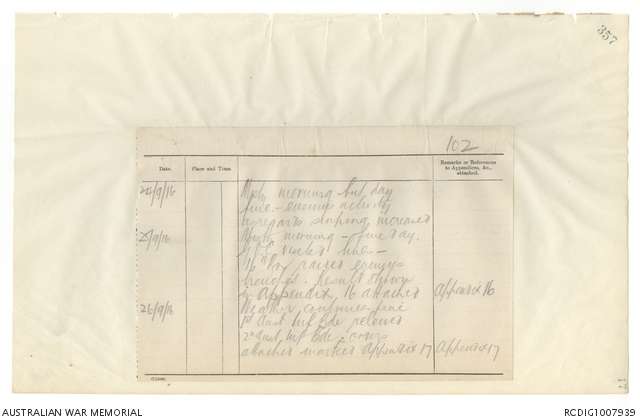 357
102
Date. Place and Time. Remarks or References to Appendices, &c., attached.
24/9/16 Misty morning but day
fine - enemy activity
as regards sniping increased
25/9/16 Misty morning - fine day.
visited line -
16th Bn raided enemy
trenches. Results shown
in Appendix 16 attached Appendix 16
26/9/16 Weather continues fine
1st Aust Inf Bde relieved
2nd Aust Inf Bde, copy
attached marked Appendix 17 Appendix 17
AUSTRALIAN WAR MEMORIAL
RCDIG1007939